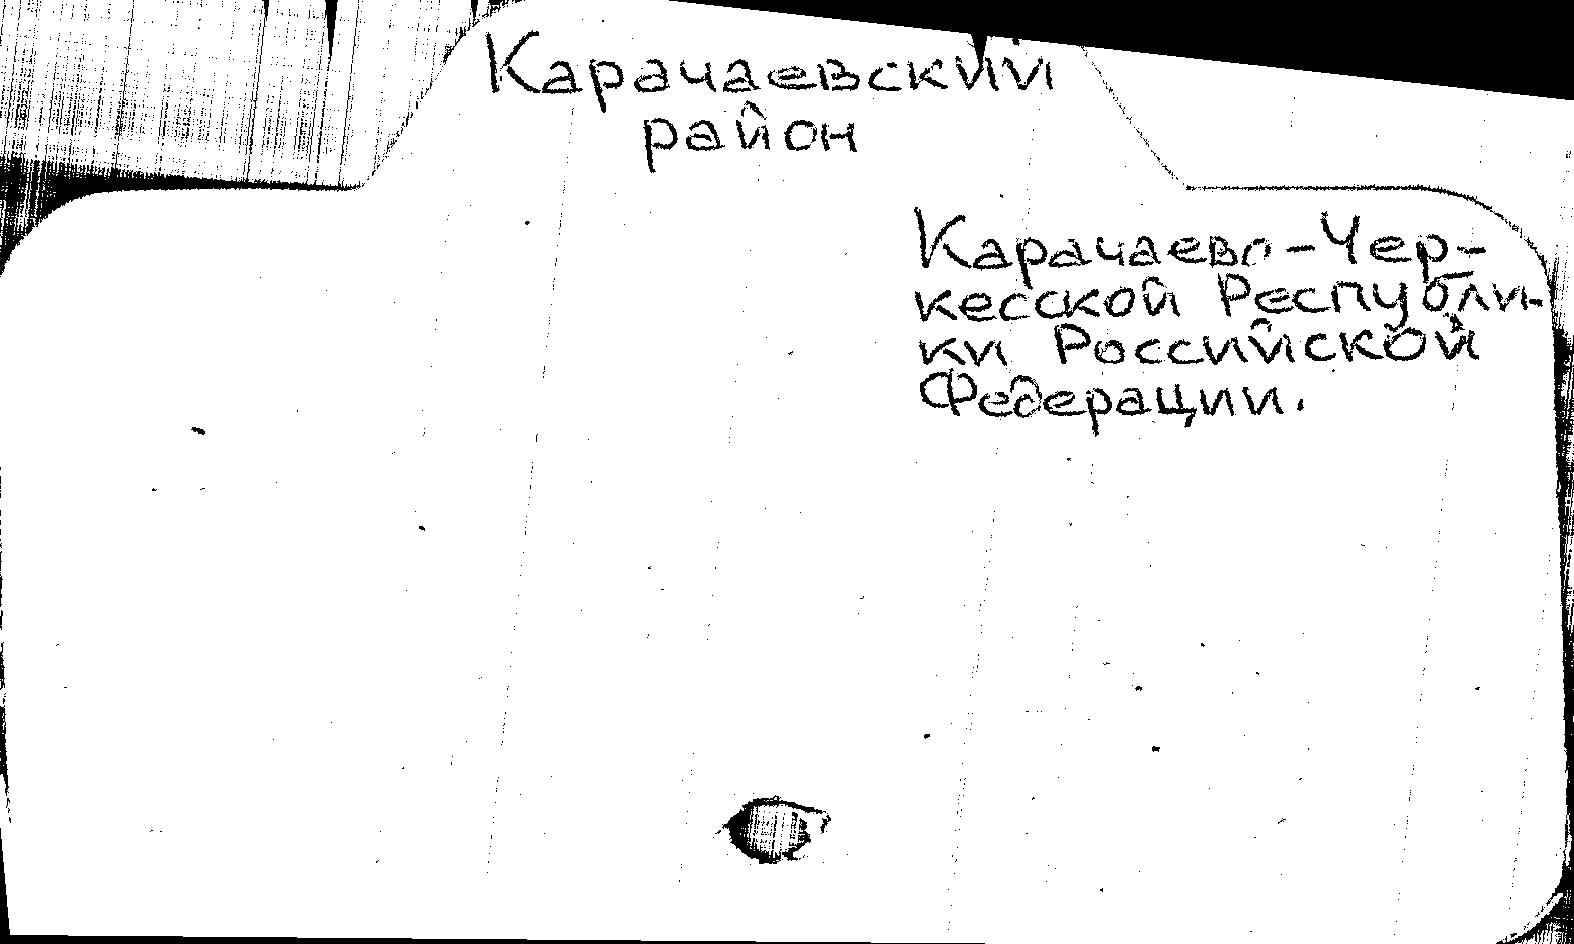 Карачаевский
район
Карачаево-Чер-
кесской Республи-
ки Российской
Федерации.